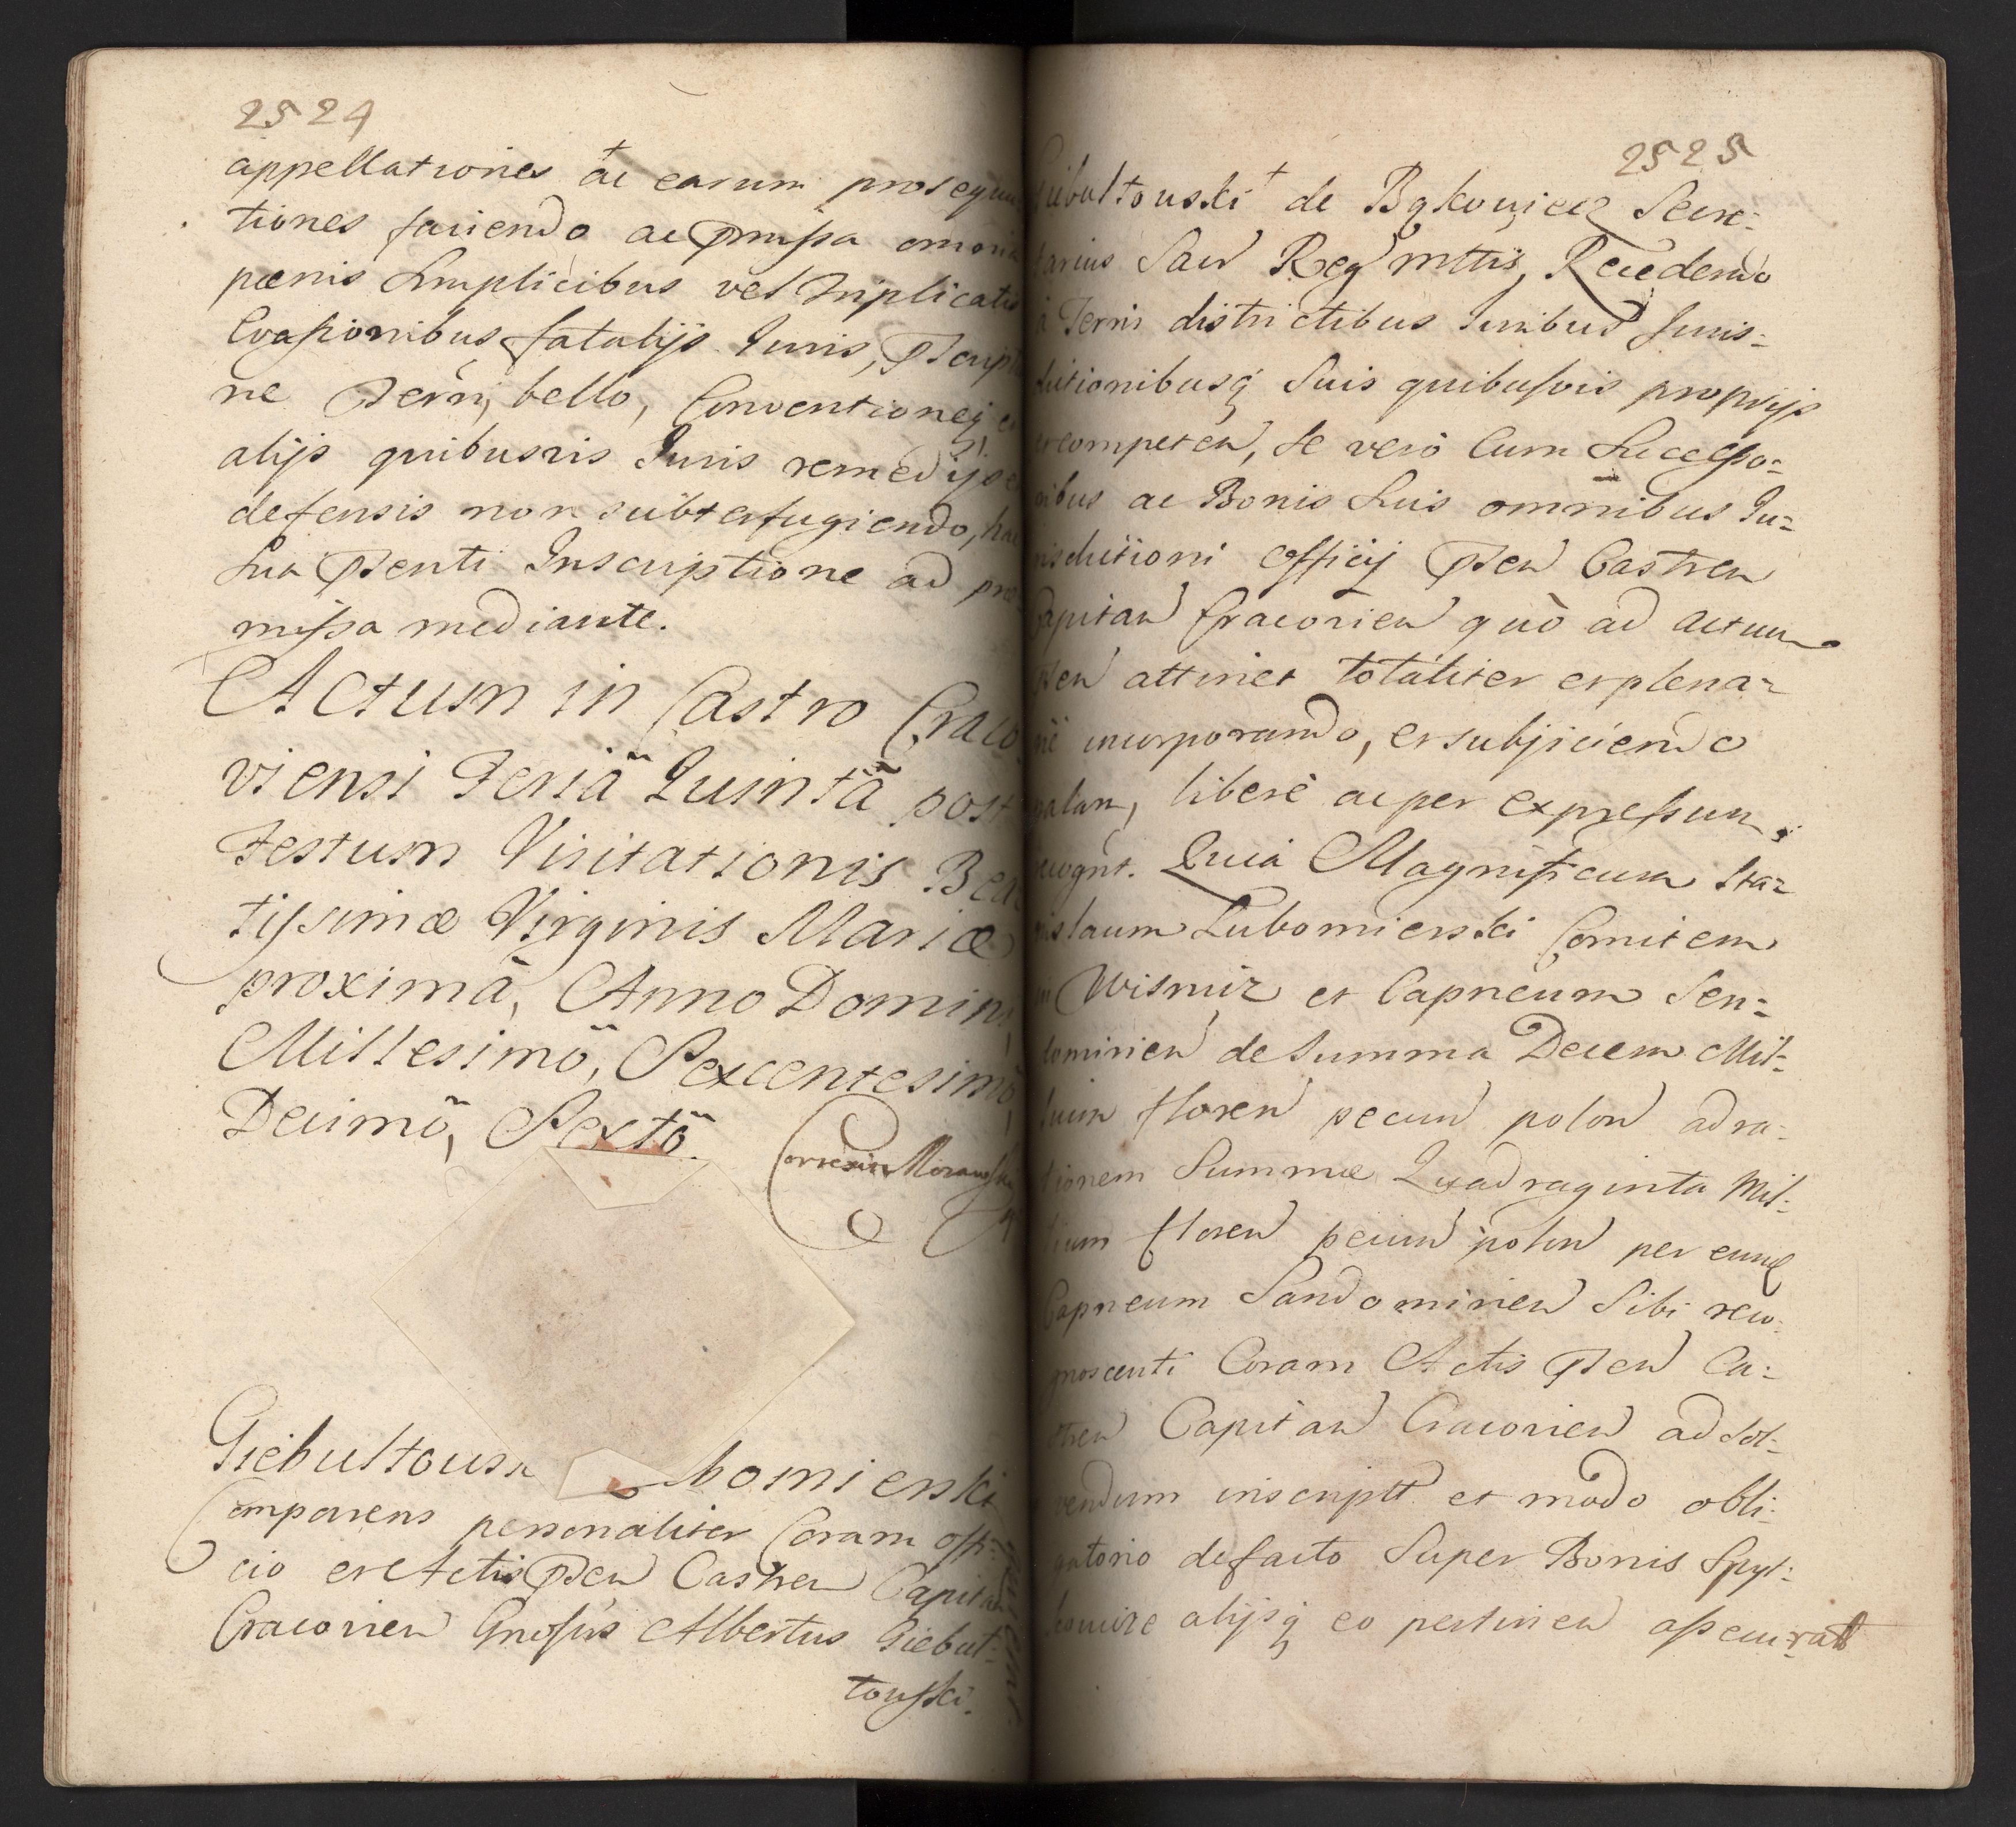 2524
appellationes ac earum prosequu
tiones faciendo ac pmissa omnia
pœnis simplicibus vel triplicatis
Evasionibus fatalijs Iuris, pscriptio
ne terri, bello, Conventioneq
alijs quibusvis Iuris remedijs
defensis non subterfugiendo, hac
sua psenti Inscriptione ad præ
missa mediante.
Actum in Castro Craco
viensi Feriâ Quintâ post
Festum Visitationis Bea
tissimæ Virginis Mariæ
proximâ, Anno Domini
Millesimô, Sexcentesimô,
Decimô, Sextô.
Correxit Morawski
Giebultowsk bomierski
Comparens personaliter Coram offi:
cio et Actis psen Castren Capitan
Cracovien Gnosus Albertus Giebul:
towski.
2525
Giebultowski de Bąkowiec Secre:
tarius Sacr Reg mttis, Recedendo
à Terris districtibus Iuribus Juris:
dictionibusq suis quibusvis proprijs
et competen, se verò Cum Successo:
ribus ac Bonis Suis omnibus Iu:
risdictioni officij psen Castren
Capitan Cracovien quò ad actum
psen attinet totaliter et plena:
riè incorporando, et subjiciendo
palam, liberè ac per expressum
recognt. Quia Magnificum Sta:
nislaum Lubomierski Comitem
in Wisnicz et Capneum Sen:
domirien de Summa Decem Mil:
lium floren pecun polon ad ra:
tionem Summæ Quadraginta Mil:
lium floren pecun polon per eund
Capneum Sandomirien Sibi reco:
gnoscenti Coram Actis psen Ca:
stren Capitan Cracovien ad sol:
vendum inscriptt et modo obli:
gatorio de facto Super Bonis Spyt:
kowice alijsq eo pertinen assecurat